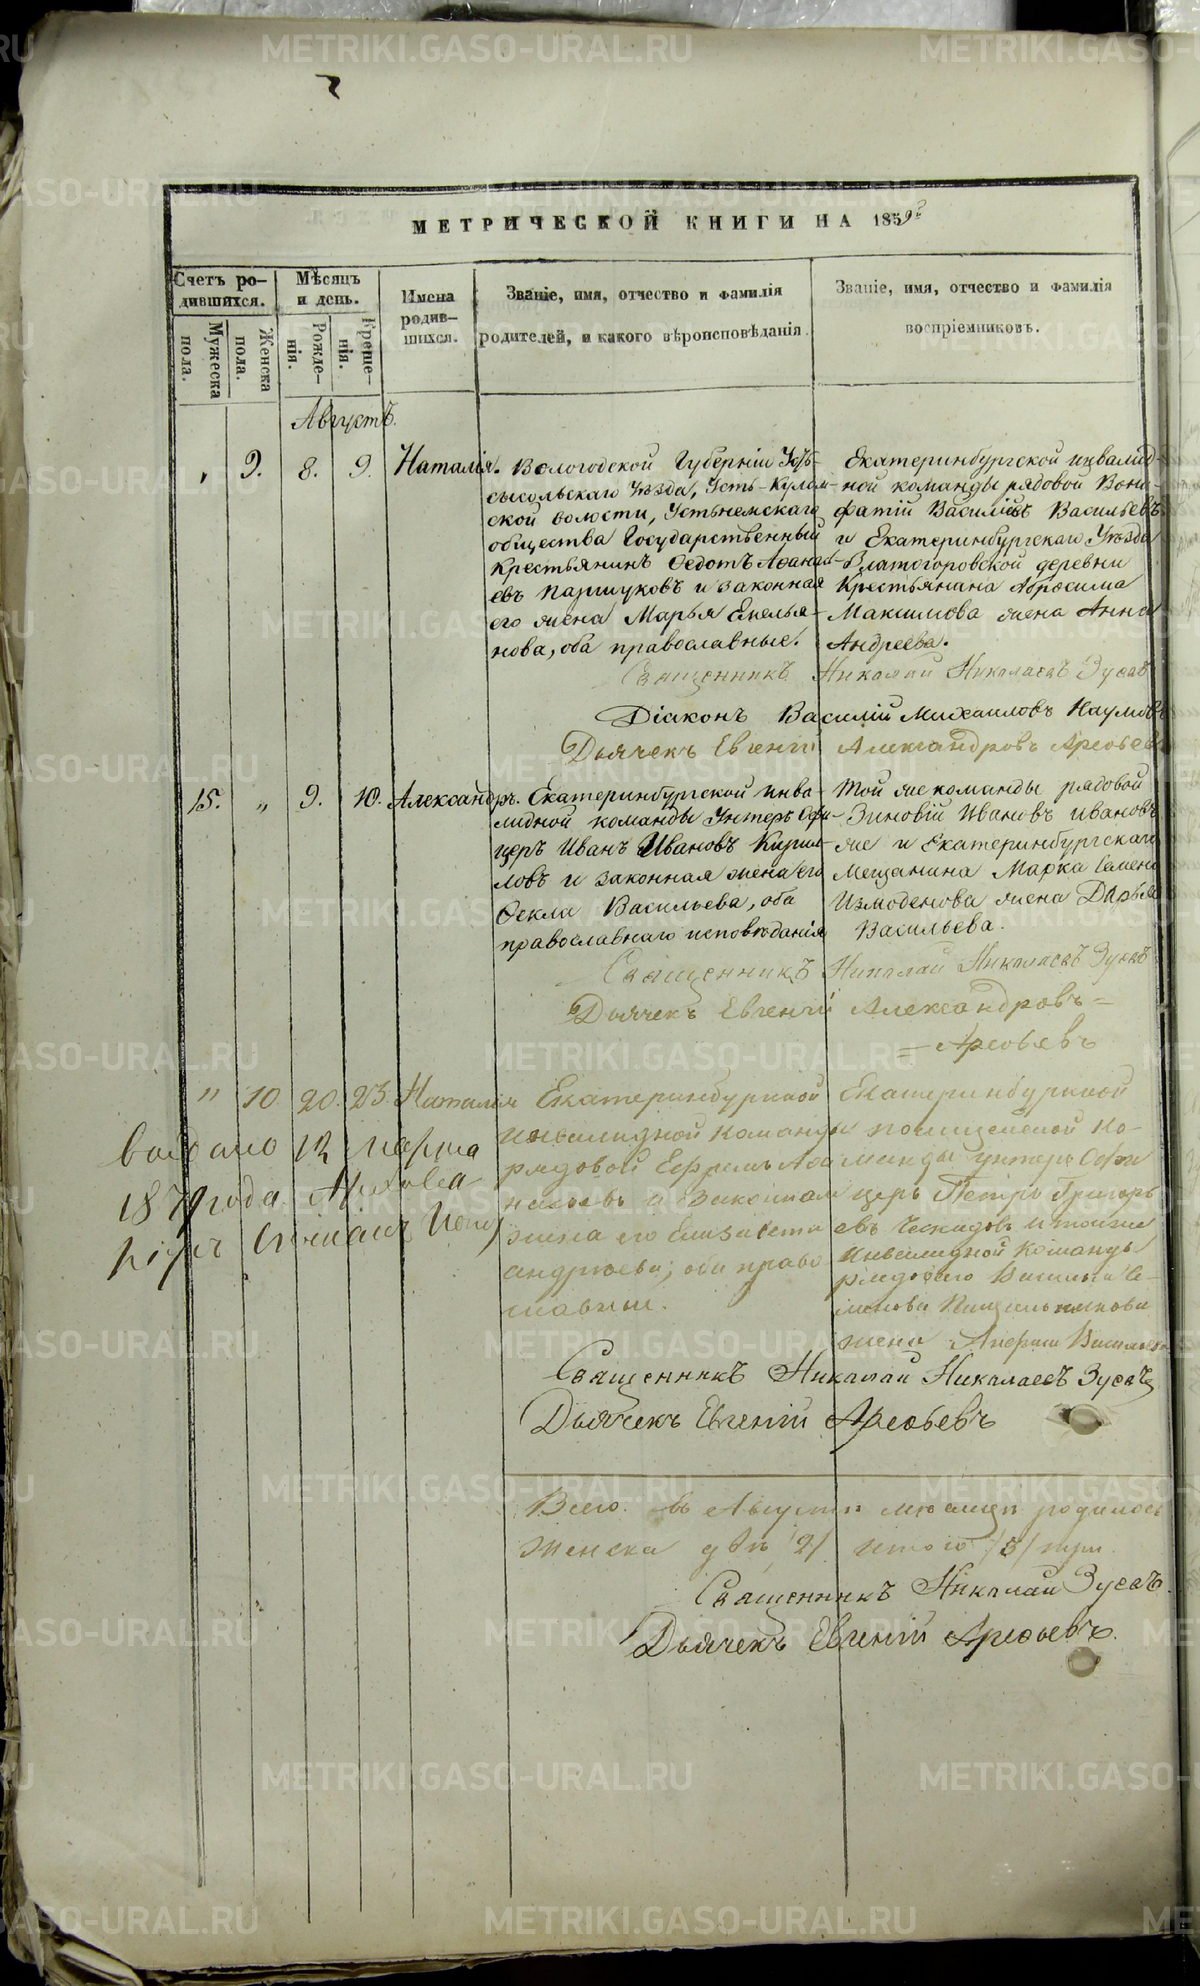 МЕТРИЧЕСКОЙ КНИГИ НА 1859
Счетъ ро-
дившихся.
Мужеска
пола.
Женска
пола.
Мѣсяцъ
и день.
Рожде-
нія.
Креще-
нія.
Имена
родив-
шихся.
Званіе, имя, отчество и фамилія
родителей, и какого вѣроисповѣданія.
Званіе, имя, отчество и фамилія
воспріемниковъ.
Августъ.
9. 8. 9. Наталія.
Вологодской Губерніи Усть-
сысольскаго Уѣзда, Усть-Кулом-
ской волости, Устьнемскаго
общества Государственный
Крестьянинъ Ѳедотъ Аѳанась-
евъ Паршуковъ и законная
его жена Марья Емелья-
нова, оба православные.
Екатеринбургской инвалид-
ной команды рядовой Вони-
фатій Васильевъ
и Екатеринбургскаго Уѣзда
Крестьянина Абросима
Максимова жена Анна
Андреева.
Священникъ Николай Николаевъ Зуевъ
Діаконъ Василій Михаиловъ Наумовъ
Дьячекъ Евгеній Александровъ Арефьевъ
15. „ 9. 10. Александръ.
Екатеринбургской инва-
лидной команды Унтеръ Офи-
церъ Иванъ Ивановъ Кирил-
ловъ и законная жена его
Ѳекла Васильева, оба
православнаго исповѣданія
Той же команды рядовой
Зиновій Ивановъ Ивановъ
же и Екатеринбургскаго
Мещанина Марка Семено
Измоденова жена Дарья
Васильева.
Священникъ Николай Николаевъ Зуевъ
Дьячекъ Евгеній Александровъ =
= Арефьевъ
„ 10 20. 23. Наталія
Екатеринбургской
инвалидной команды
рядовой Ефремъ Аѳа
насьевъ и законная
жена его Елизавета
андреева; оба право
славные.
Екатеринбургской
ко-
манды унтеръ Офи
церъ Петръ Григорь
евъ и тойже
инвалидной команды
рядоваго Василья Се-
менова
жена Васильева
выдано 12 марта
187 года
Священникъ Николай Николаевъ Зуевъ
Дьячекъ Евгеній Арефьевъ
Всего въ Августѣ месяцѣ родилось
женска двѣ /2/ итого /3/ три.
Священникъ Николай Зуевъ.
Дьячекъ Евгеній Арефьевъ.
METRIKI.GASO-URAL.RU